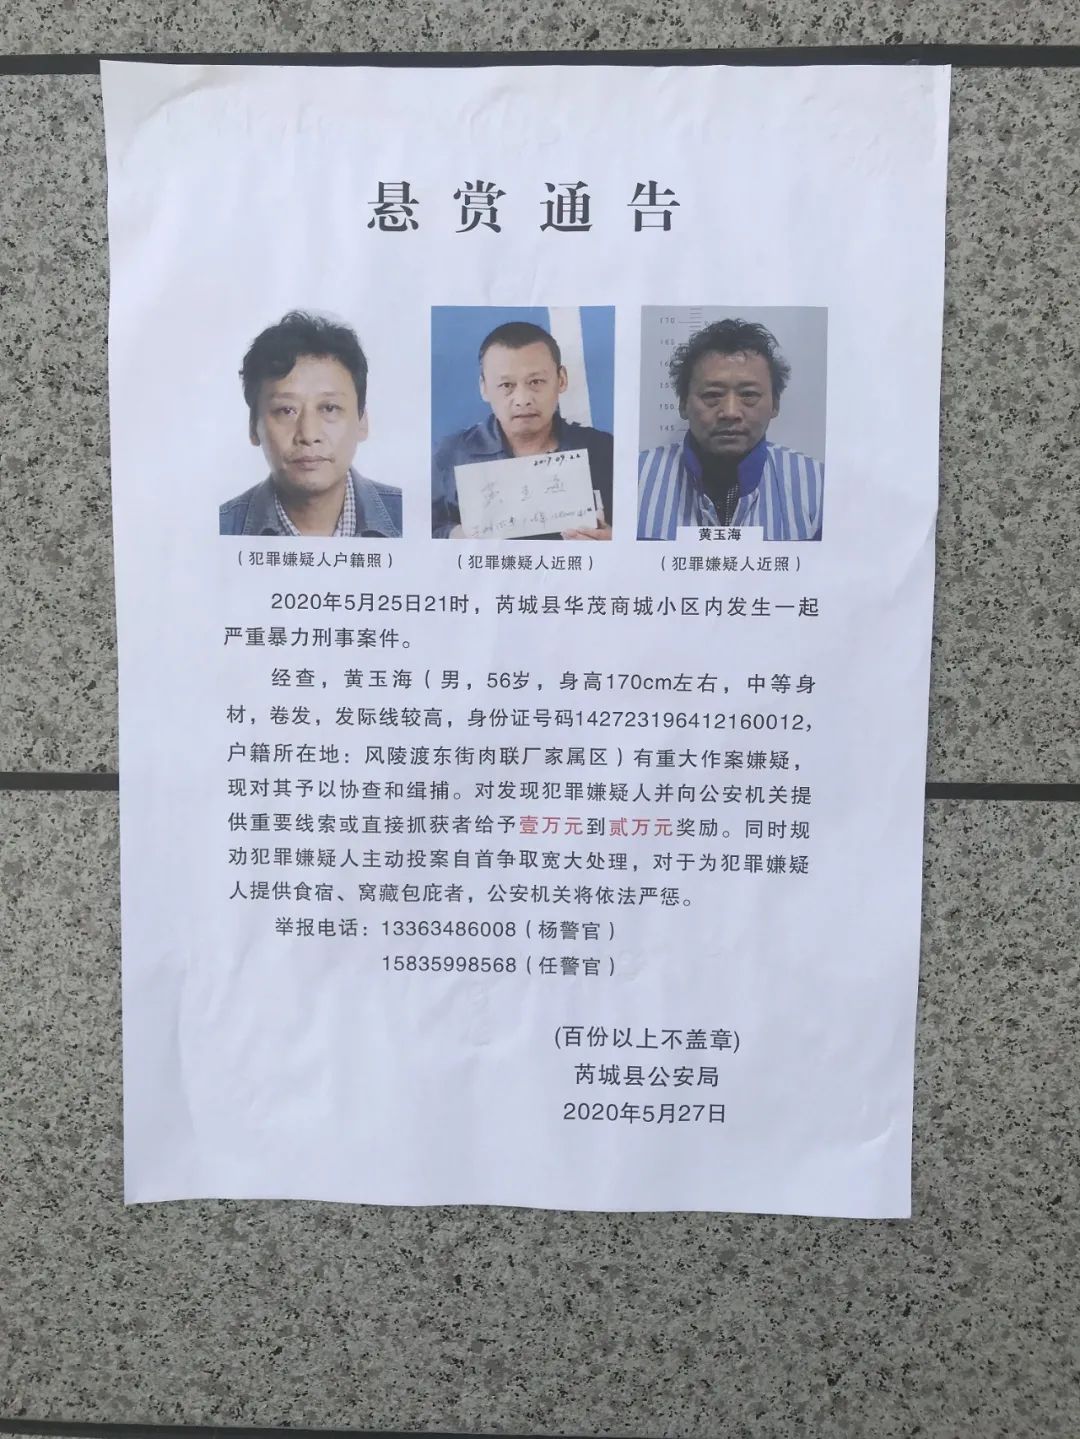 悬赏通告
170
165
150
145
2019.09.22
黄玉海
黄玉海
（犯罪嫌疑人户籍照）
（犯罪嫌疑人近照）
（犯罪嫌疑人近照）
2020年5月25日21时，芮城县华茂商城小区内发生一起
严重暴力刑事案件。
经查，黄玉海（男，56岁，身高170cm左右，中等身
材，卷发，发际线较高，身份证号码142723196412160012，
户籍所在地：风陵渡东街肉联厂家属区）有重大作案嫌疑，
现对其予以协查和缉捕。对发现犯罪嫌疑人并向公安机关提
供重要线索或直接抓获者给予壹万元到贰万元奖励。同时规
劝犯罪嫌疑人主动投案自首争取宽大处理，对于为犯罪嫌疑
人提供食宿、窝藏包庇者，公安机关将依法严惩。
举报电话：13363486008（杨警官）
15835998568（任警官）
(百份以上不盖章)
芮城县公安局
2020年5月27日